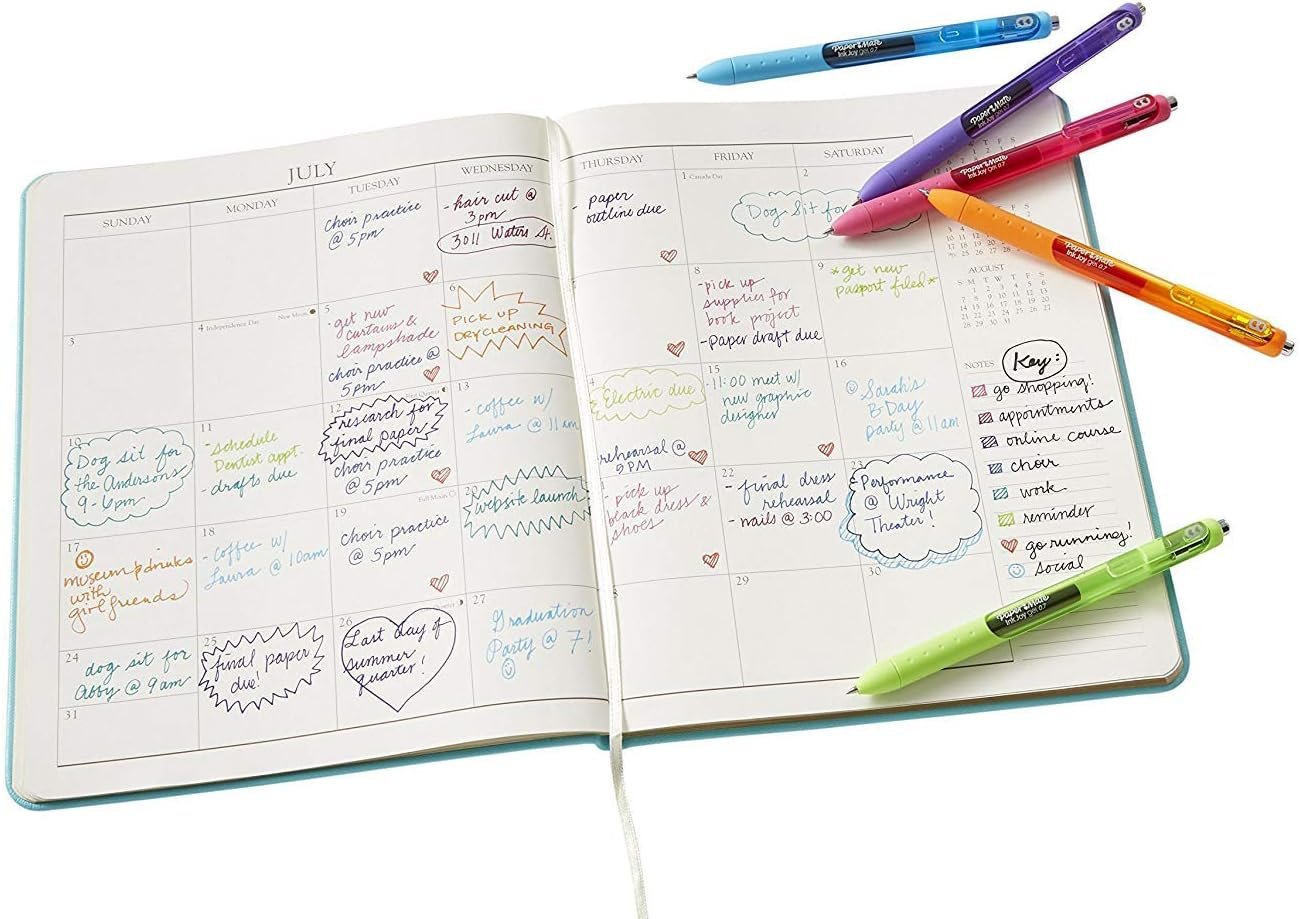 JULY
SUNDAY
MONDAY
TUESDAY
WEDNESDAY
THURSDAY
FRIDAY
SATURDAY
choir practice
@ 5pm
-hair cut @
3pm
3011 Waters St.
- paper
outline due
1 Canada Day
2
Dog Sit for
3
4 Independence Day
New Moon
5
-get new
curtains &
lampshade
choir practice @
5pm
6
PICK UP
DRYCLEANING
8
-pick up
supplies for
book project
-paper draft due
9
*get new
passport filed*
10
Dog sit for
the Andersons
9-6pm
11
-schedule
Dentist appt.
-drafts due
12
research for
final paper
choir practice
@ 5pm
13
-coffee w/
Laura @ 11am
14
Electric due
rehearsal @
9PM
15
-11:00 meet w/
new graphic
designer
16
Sarah's
B-Day
party @ 11am
17
museum & drinks
with
girlfriends
18
-coffee w/
Laura @ 10am
Full Moon
19
choir practice
@ 5pm
20
website launch
-pick up
black dress &
shoes
22
-final dress
rehearsal
-nails @ 3:00
23
Performance
@ Wright
Theater!
24
dog sit for
Abby @ 9am
25
final paper
due!
26
Last day of
summer
quarter!
27
Graduation
Party @ 7!
29
30
31
AUGUST
S M T W T F S
1 2 3 4 5 6
7 8 9 10 11 12 13
14 15 16 17 18 19 20
21 22 23 24 25 26 27
28 29 30 31
NOTES
Key:
go shopping!
appointments
online course
choir
work
reminder
go running!
social
Paper Mate
InkJoy gel 0.7
Paper Mate
InkJoy gel 0.7
Paper Mate
InkJoy gel 0.7
Paper Mate
InkJoy gel 0.7
Paper Mate
InkJoy gel 0.7